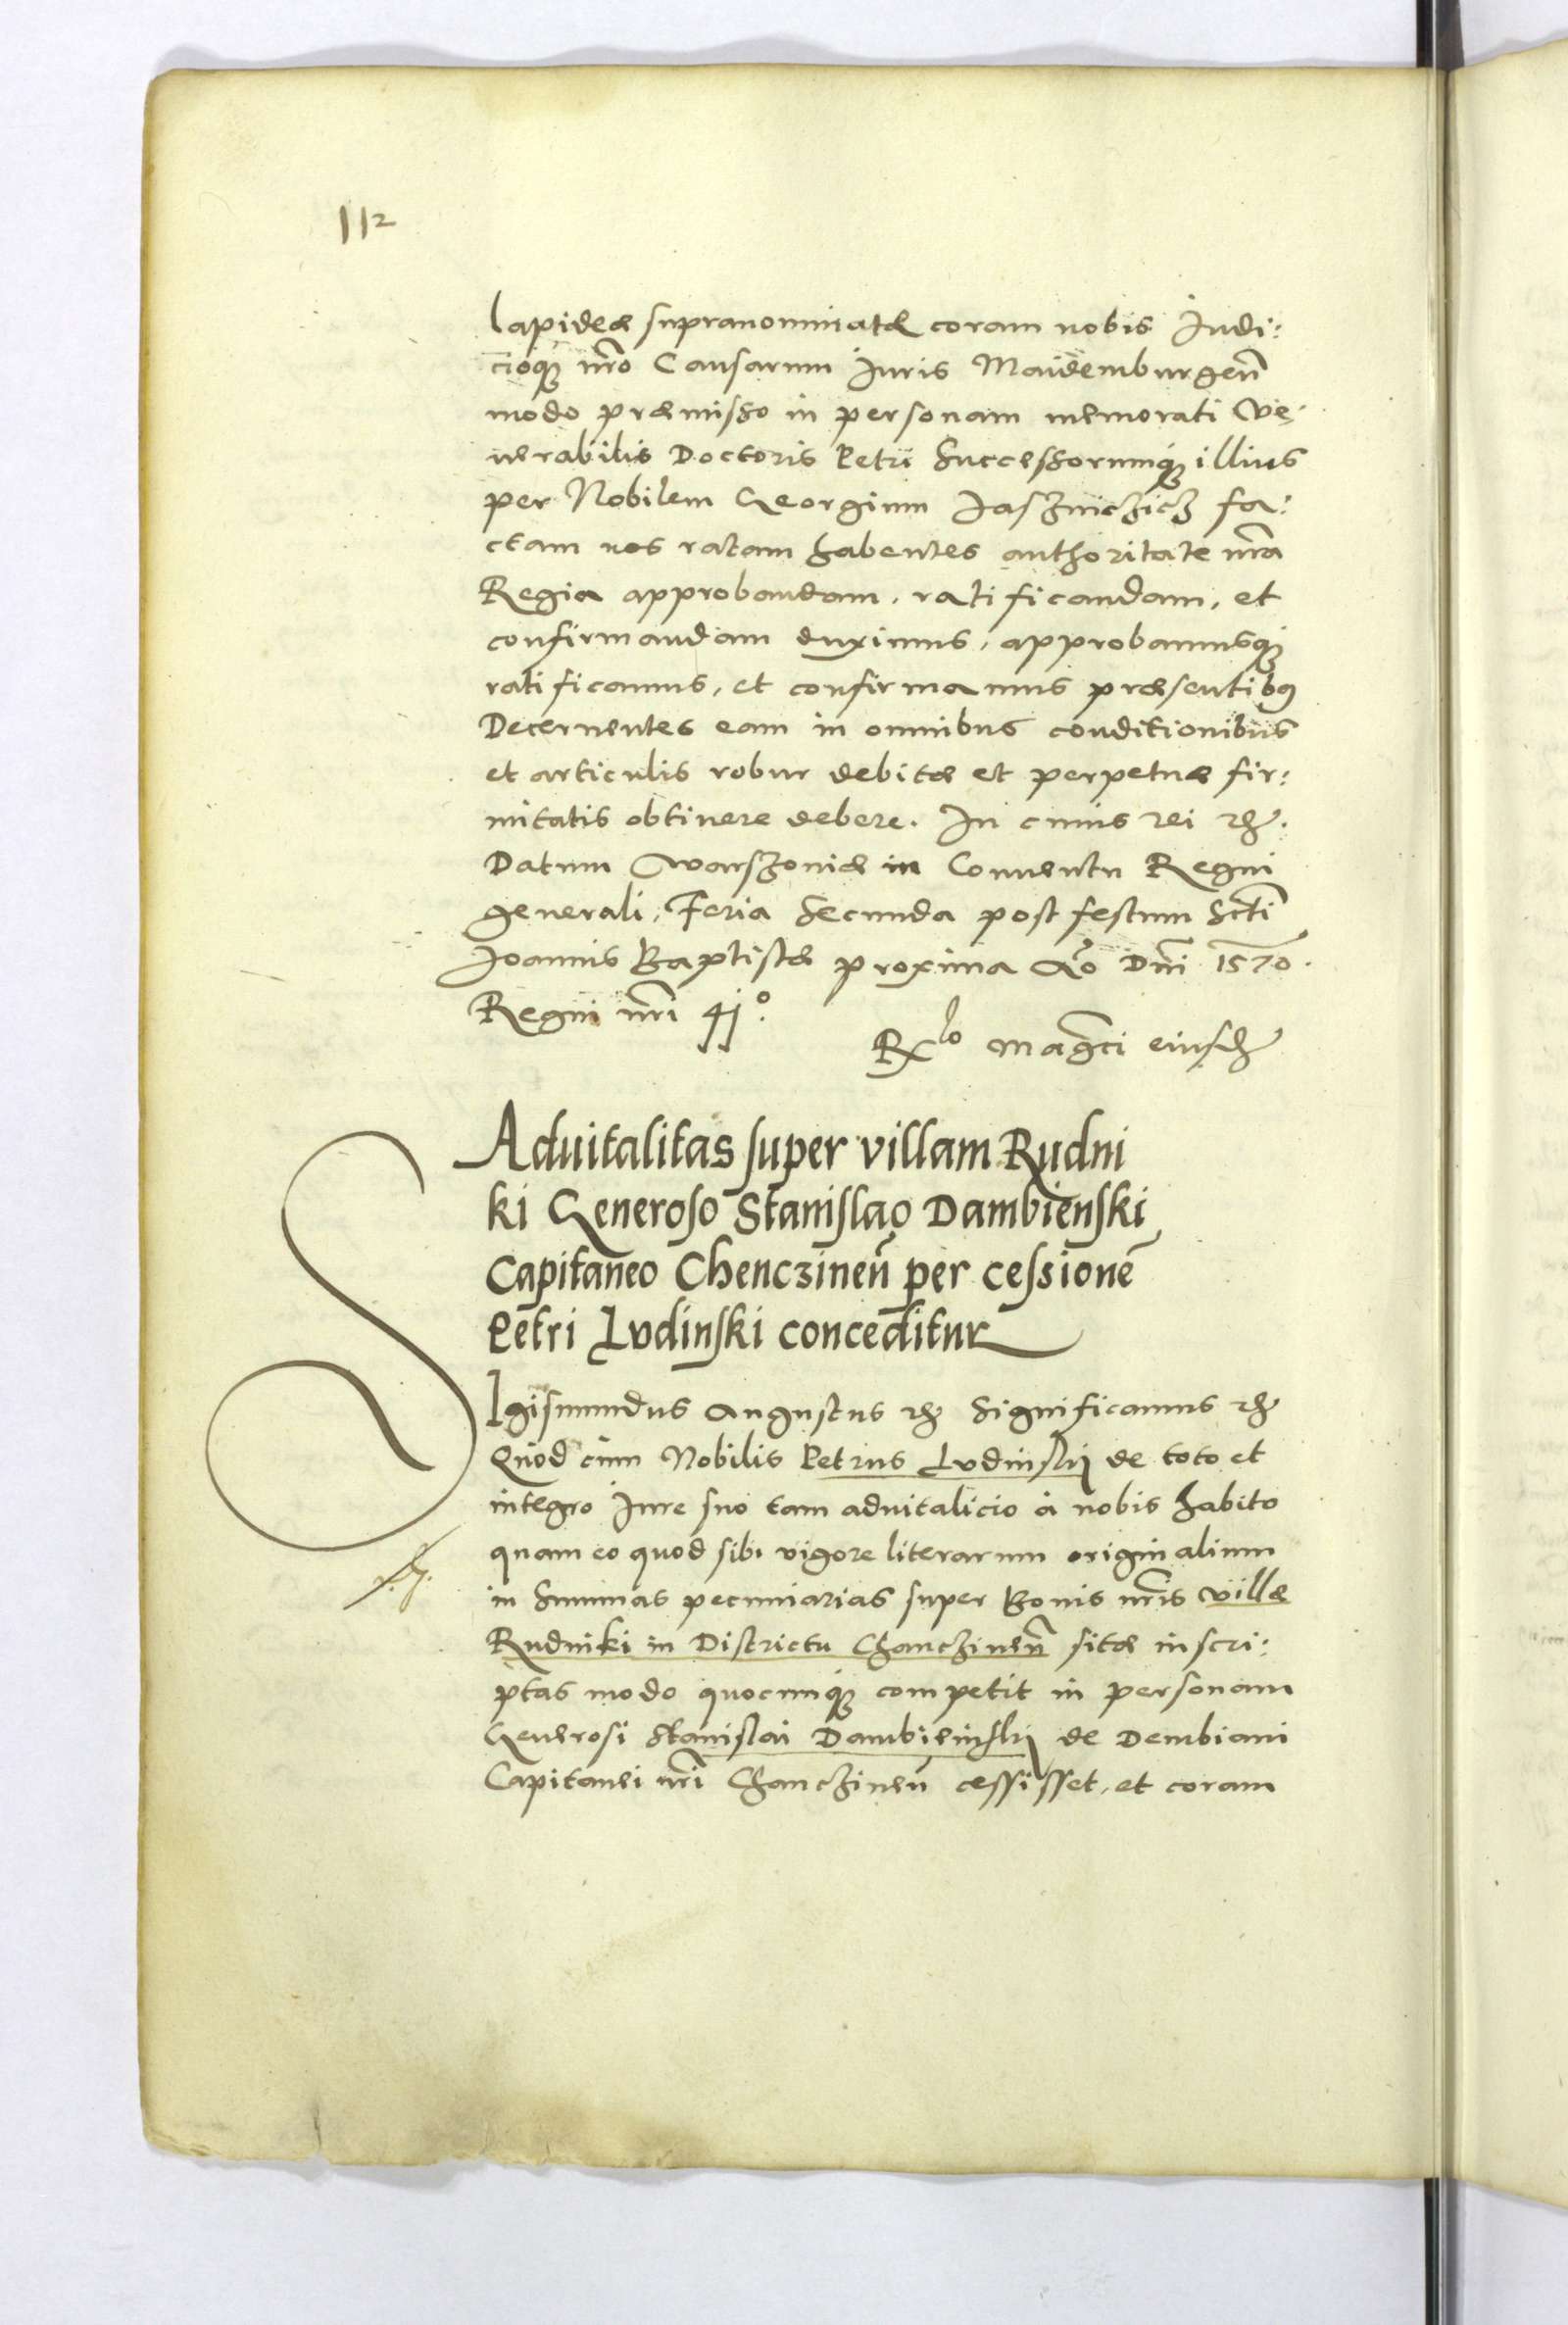 112
lapideæ supranominatæ coram nobis Iudi:
cioq₃ nr̃o Causarum Iuris Maidemburgeñ
modo præmisso in personam memorati Ve-
nerabilis Doctoris Petri Successorumq₃ illius
per Nobilem Georgium Jaszniczicz fa:
ctam nos ratam habentes authoritate nr̃a
Regia approbandam, ratificandam, et
confirmandam duximus, approbamusq₃
ratificamus, et confirmamus præsentibꝰ
Decernentes eam in omnibus conditionibus
et articulis robur debitæ et perpetuæ fir:
mitatis obtinere debere. In cuius rei ꝛc.
Datum Warszoviæ in Conventu Regni
generali, Feria Secunda post festum Scti
Joannis Baptistæ proxima Aº Dñi 1570.
Regni nr̃i 41º.
Rlo Magci eiusd
Aduitalitas super villam Rudni
ki Generoso Stanislao Dambienski
Capitaneo Chenczineñ per cessionẽ
Petri Lvdinski conceditur
SIgismundus Augustus ꝛc Significamus ꝛc
Quod cum Nobilis Petrus Lvdinskij de toto et
integro Iure suo tam aduitalicio à nobis habito
quam eo quod sibi vigore literarum originalium
in Summas pecuniarias super Bonis nr̃is villæ
Rudniki in Districtu Chanczineñ sitæ inscri:
ptas modo quocunq₃ competit in personam
Generosi Stanislai Dambieńskij de Dembiani
Capitanei nr̃i Chanczineñ cessisset, et coram